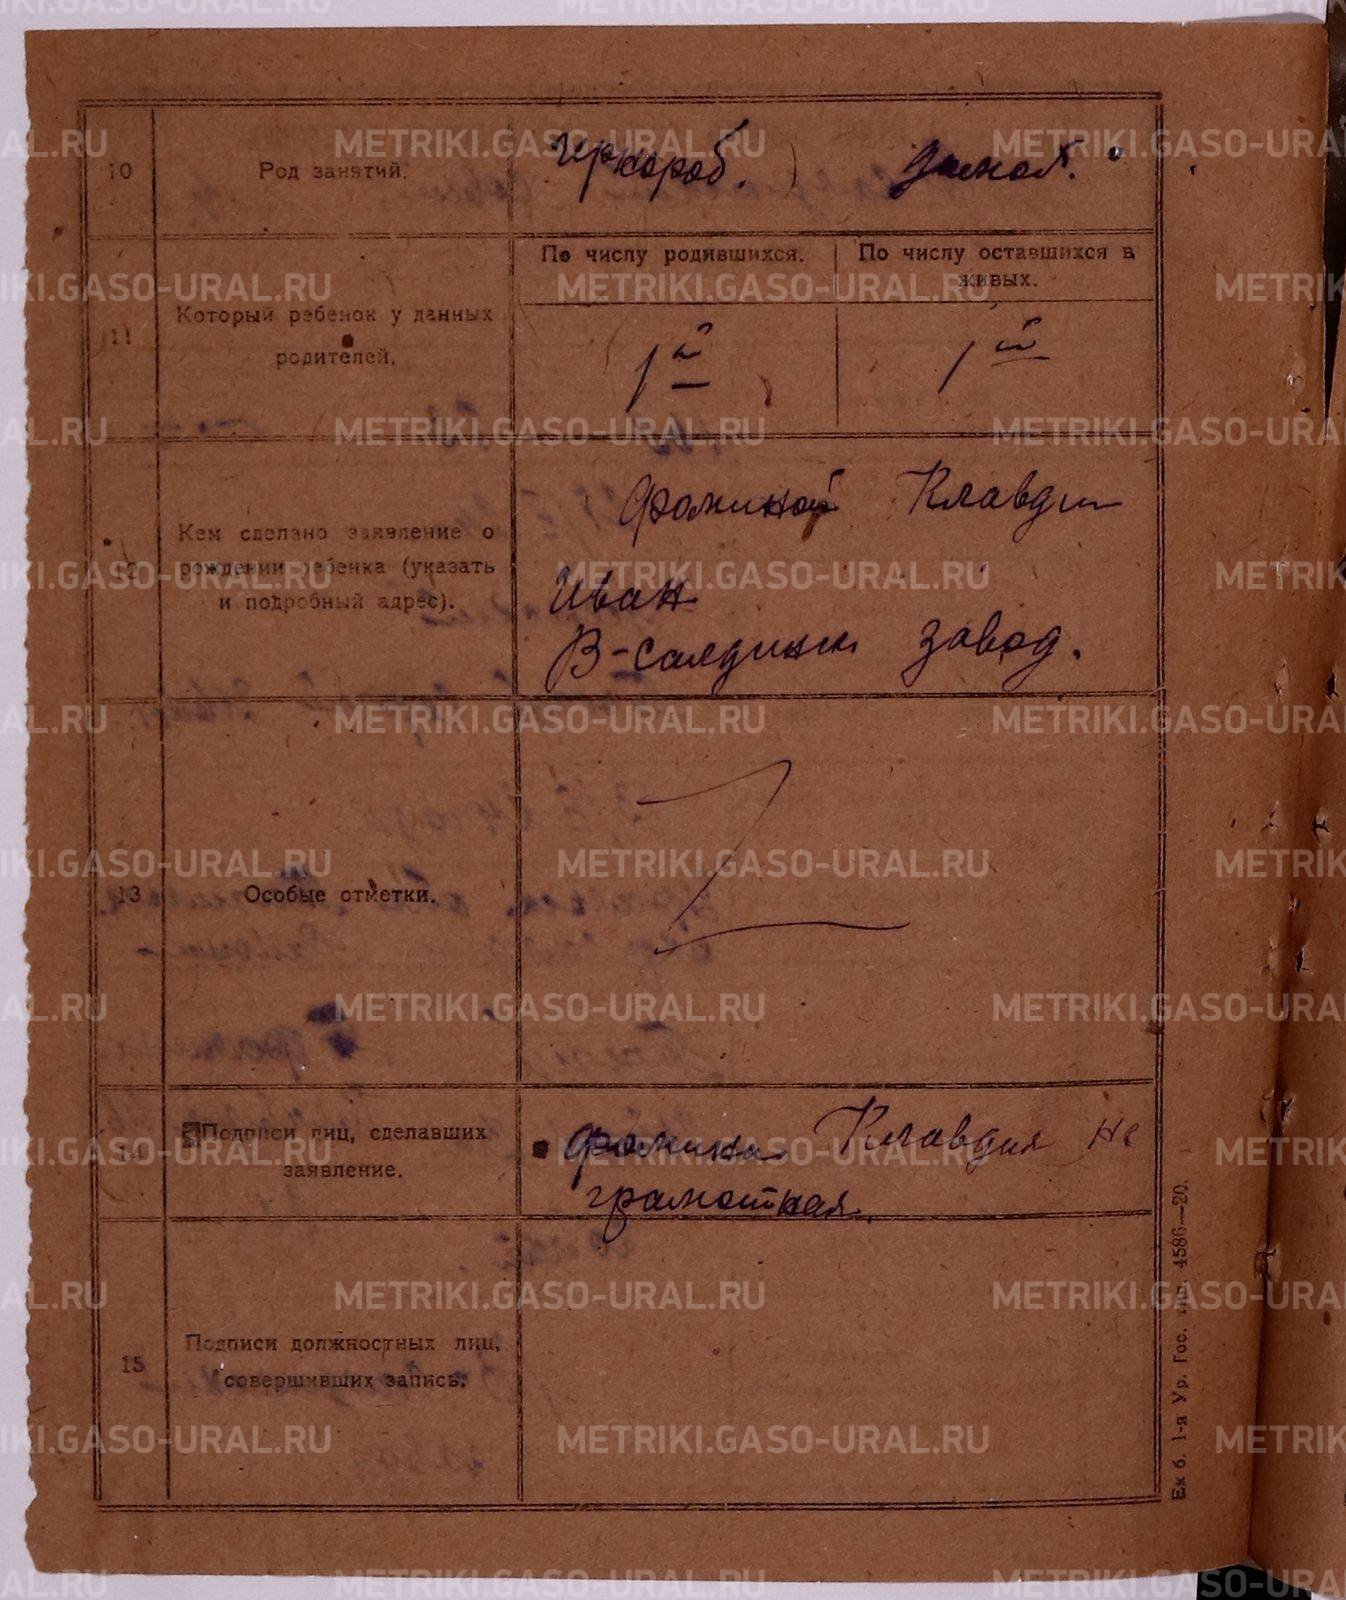 10
Род занятий.
чернораб.
домох.
11
Который ребенок у данных
родителей.
По числу родившихся.
По числу оставшихся в
живых.
1й
1й
12
Кем сделано заявление о
рождении ребенка (указать
и подробный адрес).
Фоминой Клавдии
Иван
В-салдинск завод.
13
Особые отметки.
14
Подписи лиц, сделавших
заявление.
Фомина Клавдия не
грамотная.
15
Подписи должностных лиц,
совершивших запись.
Ек б. 1-я Ур. Гос. тип. 4586—20.
METRIKI.GASO-URAL.RU